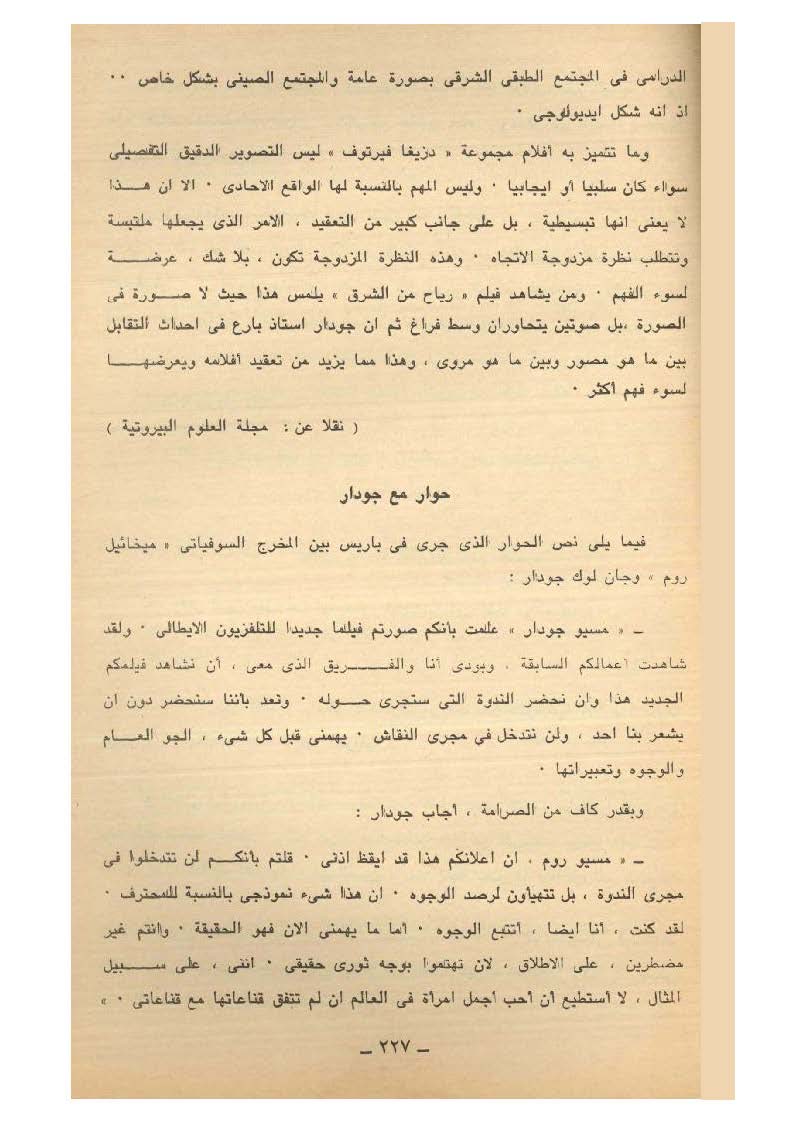 الدرامى فى المجتمع الطبقى الشرقى بصورة عامة والمجتمع الصينى بشكل خاص ٠٠
اذ انه شكل ايديولوجى ٠
وما تتميز به أفلام مجموعة « دزيغا فيرتوف » ليس التصوير الدقيق التفصيلى
سواء كان سلبيا أو ايجابيا ٠ وليس المهم بالنسبة لها الواقع الاحادى ٠ الا ان هــذا
لا يعنى انها تبسيطية ، بل على جانب كبير من التعقيد ، الامر الذى يجعلها ملتبسة
وتتطلب نظرة مزدوجة الاتجاه ٠ وهذه النظرة المزدوجة تكون ، بلا شك ، عرضــــة
لسوء الفهم ٠ ومن يشاهد فيلم « رياح من الشرق » يلمس هذا حيث لا صــورة فى
الصورة ،بل صوتين يتحاوران وسط فراغ ثم ان جودار استاذ بارع فى احداث التقابل
بين ما هو مصور وبين ما هو مروى ، وهذا مما يزيد من تعقيد أفلامه ويعرضهـــا
لسوء فهم أكثر ٠
( نقلا عن : مجلة العلوم البيروتية )
حوار مع جودار
فيما يلى نص الحوار الذى جرى فى باريس بين المخرج السوفياتى « ميخائيل
روم » وجان لوك جودار :
ـ « مسيو جودار » علمت بأنكم صورتم فيلما جديدا للتلفزيون الايطالى ٠ ولقد
شاهدت أعمالكم السابقة ، وبودى أنا والفـــــريق الذى معى ، أن نشاهد فيلمكم
الجديد هذا وان نحضر الندوة التى ستجرى حــوله ٠ ونعد بأننا سنحضر دون ان
يشعر بنا احد ، ولن نتدخل في مجرى النقاش ٠ يهمنى قبل كل شىء ، الجو العــام
والوجوه وتعبيراتها ٠
وبقدر كاف من الصرامة ، أجاب جودار :
ـ « مسيو روم ، ان اعلانكم هذا قد ايقظ اذنى ٠ قلتم بأنكــم لن تتدخلوا فى
مجرى الندوة ، بل تتهيأون لرصد الوجوه ٠ ان هذا شىء نموذجى بالنسبة للمحترف ٠
لقد كنت ، أنا ايضا ، أتتبع الوجوه ٠ أما ما يهمنى الان فهو الحقيقة ٠ وانتم غير
مضطرين ، على الاطلاق ، لان تهتموا بوجه ثورى حقيقى ٠ اننى ، على ســبيل
المثال ، لا أستطيع أن أحب أجمل امرأة فى العالم ان لم تتفق قناعاتها مع قناعاتى ٠ »
ـ ٢٢٧ ـ